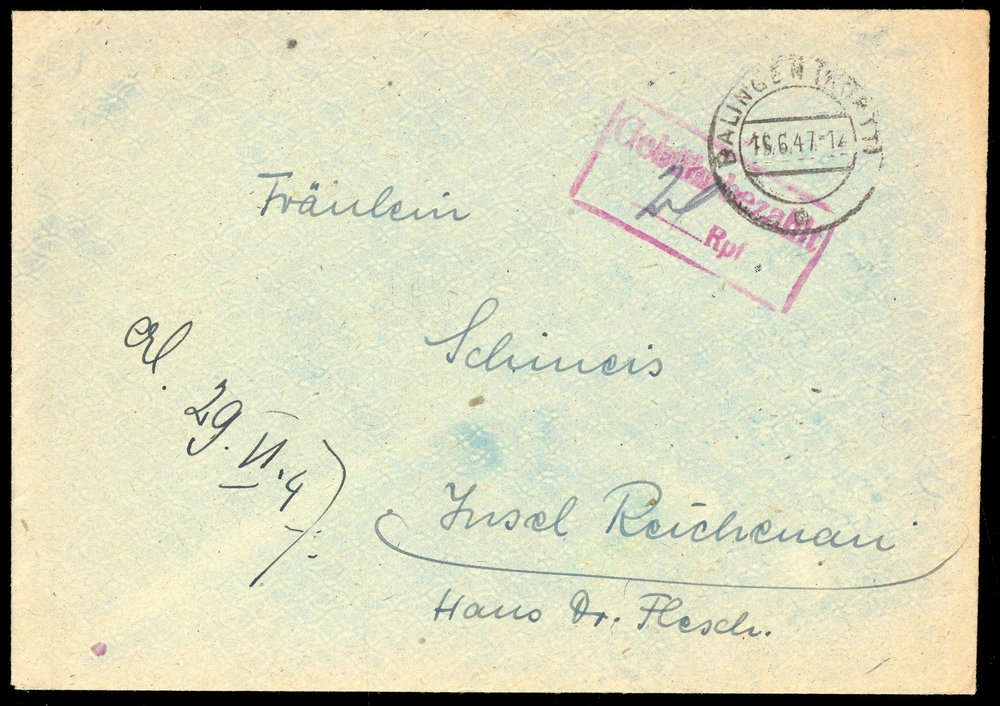 BALINGEN (WÜRTT)
16.6.47.-12
a
Gebühr bezahlt
24
Rpf
Fräulein
Schineis
Insel Reichenau
Haus Dr. Flesch.
29. VI. 47.